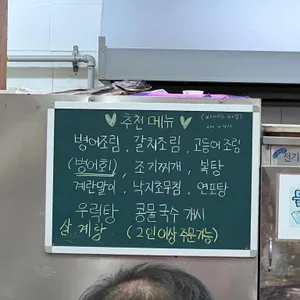 ♥ 추천 메뉴 ♥
병어조림, 갈치조림, 고등어조림
(병어회), 조기찌개, 복탕
계란말이, 낙지초무침, 연포탕
우럭탕 콩물국수 개시
삼계탕 (2인이상 주문가능)